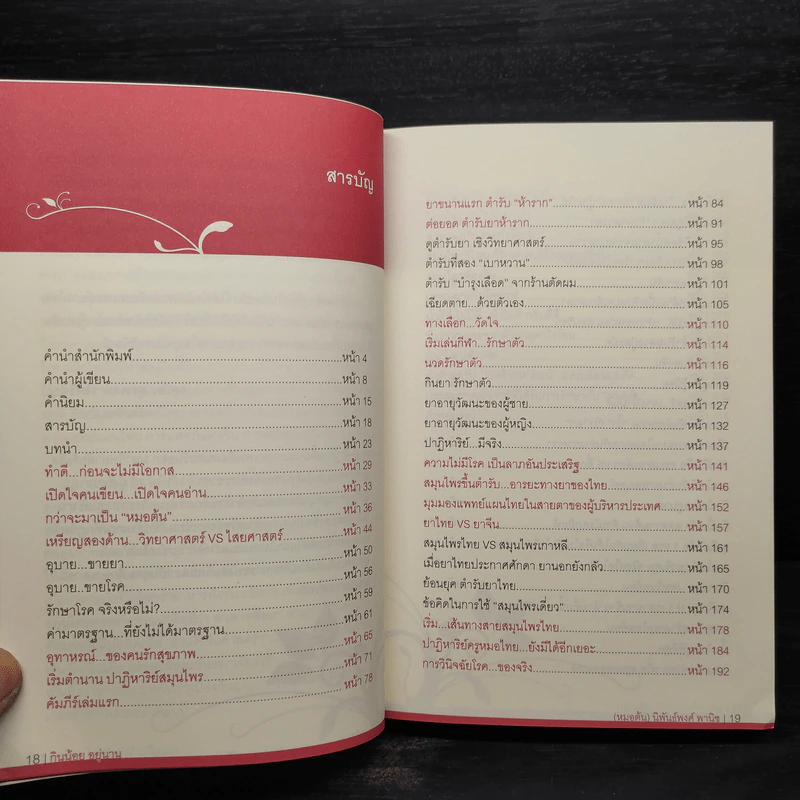 สารบัญ
คำนำสำนักพิมพ์.......................................................หน้า 4
คำนำผู้เขียน............................................................หน้า 8
คำนิยม..................................................................หน้า 15
สารบัญ..................................................................หน้า 18
บทนำ...................................................................หน้า 23
ทำดี...ก่อนจะไม่มีโอกาส............................................หน้า 29
เปิดใจคนเขียน...เปิดใจคนอ่าน....................................หน้า 33
กว่าจะมาเป็น “หมอต้น”.............................................หน้า 36
เหรียญสองด้าน...วิทยาศาสตร์ VS ไสยศาสตร์....................หน้า 44
อุบาย...ขายยา.........................................................หน้า 50
อุบาย...ขายโรค........................................................หน้า 56
รักษาโรค จริงหรือไม่?................................................หน้า 59
ค่ามาตรฐาน...ที่ยังไม่ได้มาตรฐาน.................................หน้า 61
อุทาหรณ์...ของคนรักสุขภาพ.......................................หน้า 65
เริ่มตำนาน ปาฏิหาริย์สมุนไพร.....................................หน้า 71
คัมภีร์เล่มแรก..........................................................หน้า 78
18 | กินน้อย อยู่นาน
ยาขนานแรก ตำรับ “ห้าราก”.......................................หน้า 84
ต่อยอด ตำรับยาห้าราก..............................................หน้า 91
ดูตำรับยา เชิงวิทยาศาสตร์..........................................หน้า 95
ตำรับที่สอง “เบาหวาน”.............................................หน้า 98
ตำรับ “บำรุงเลือด” จากร้านตัดผม................................หน้า 101
เฉียดตาย...ด้วยตัวเอง................................................หน้า 105
ทางเลือก...วัดใจ.......................................................หน้า 110
เริ่มเล่นกีฬา...รักษาตัว................................................หน้า 114
นวดรักษาตัว............................................................หน้า 116
กินยา รักษาตัว.........................................................หน้า 119
ยาอายุวัฒนะของผู้ชาย...............................................หน้า 127
ยาอายุวัฒนะของผู้หญิง..............................................หน้า 132
ปาฏิหาริย์...มีจริง......................................................หน้า 137
ความไม่มีโรค เป็นลาภอันประเสริฐ................................หน้า 141
สมุนไพรขึ้นตำรับ...อารยะทางยาของไทย.........................หน้า 146
มุมมองแพทย์แผนไทยในสายตาของผู้บริหารประเทศ...........หน้า 152
ยาไทย VS ยาจีน......................................................หน้า 157
สมุนไพรไทย VS สมุนไพรเกาหลี...................................หน้า 161
เมื่อยาไทยประกาศศักดา ยานอกยังกลัว...........................หน้า 165
ย้อนยุค ตำรับยาไทย..................................................หน้า 170
ข้อคิดในการใช้ “สมุนไพรเดี่ยว”....................................หน้า 174
เริ่ม...เส้นทางสายสมุนไพรไทย......................................หน้า 178
ปาฏิหาริย์ครูหมอไทย...ยังมีได้อีกเยอะ............................หน้า 184
การวินิจฉัยโรค...ของจริง.............................................หน้า 192
(หมอต้น) นิพันธ์พงศ์ พานิช | 19